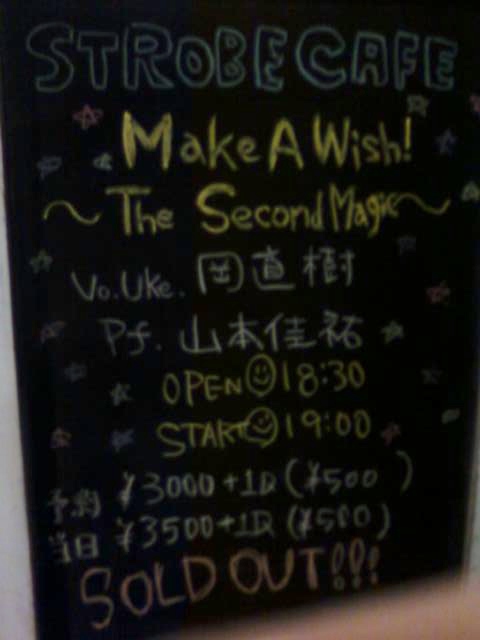 STROBE CAFE
Make A Wish!
～The Second Magic～
Vo.Uke. 岡直樹
Pf. 山本佳祐
OPEN 18:30
START 19:00
予約 ¥3000+1D(¥500)
当日 ¥3500+1D(¥500)
SOLD OUT!!!